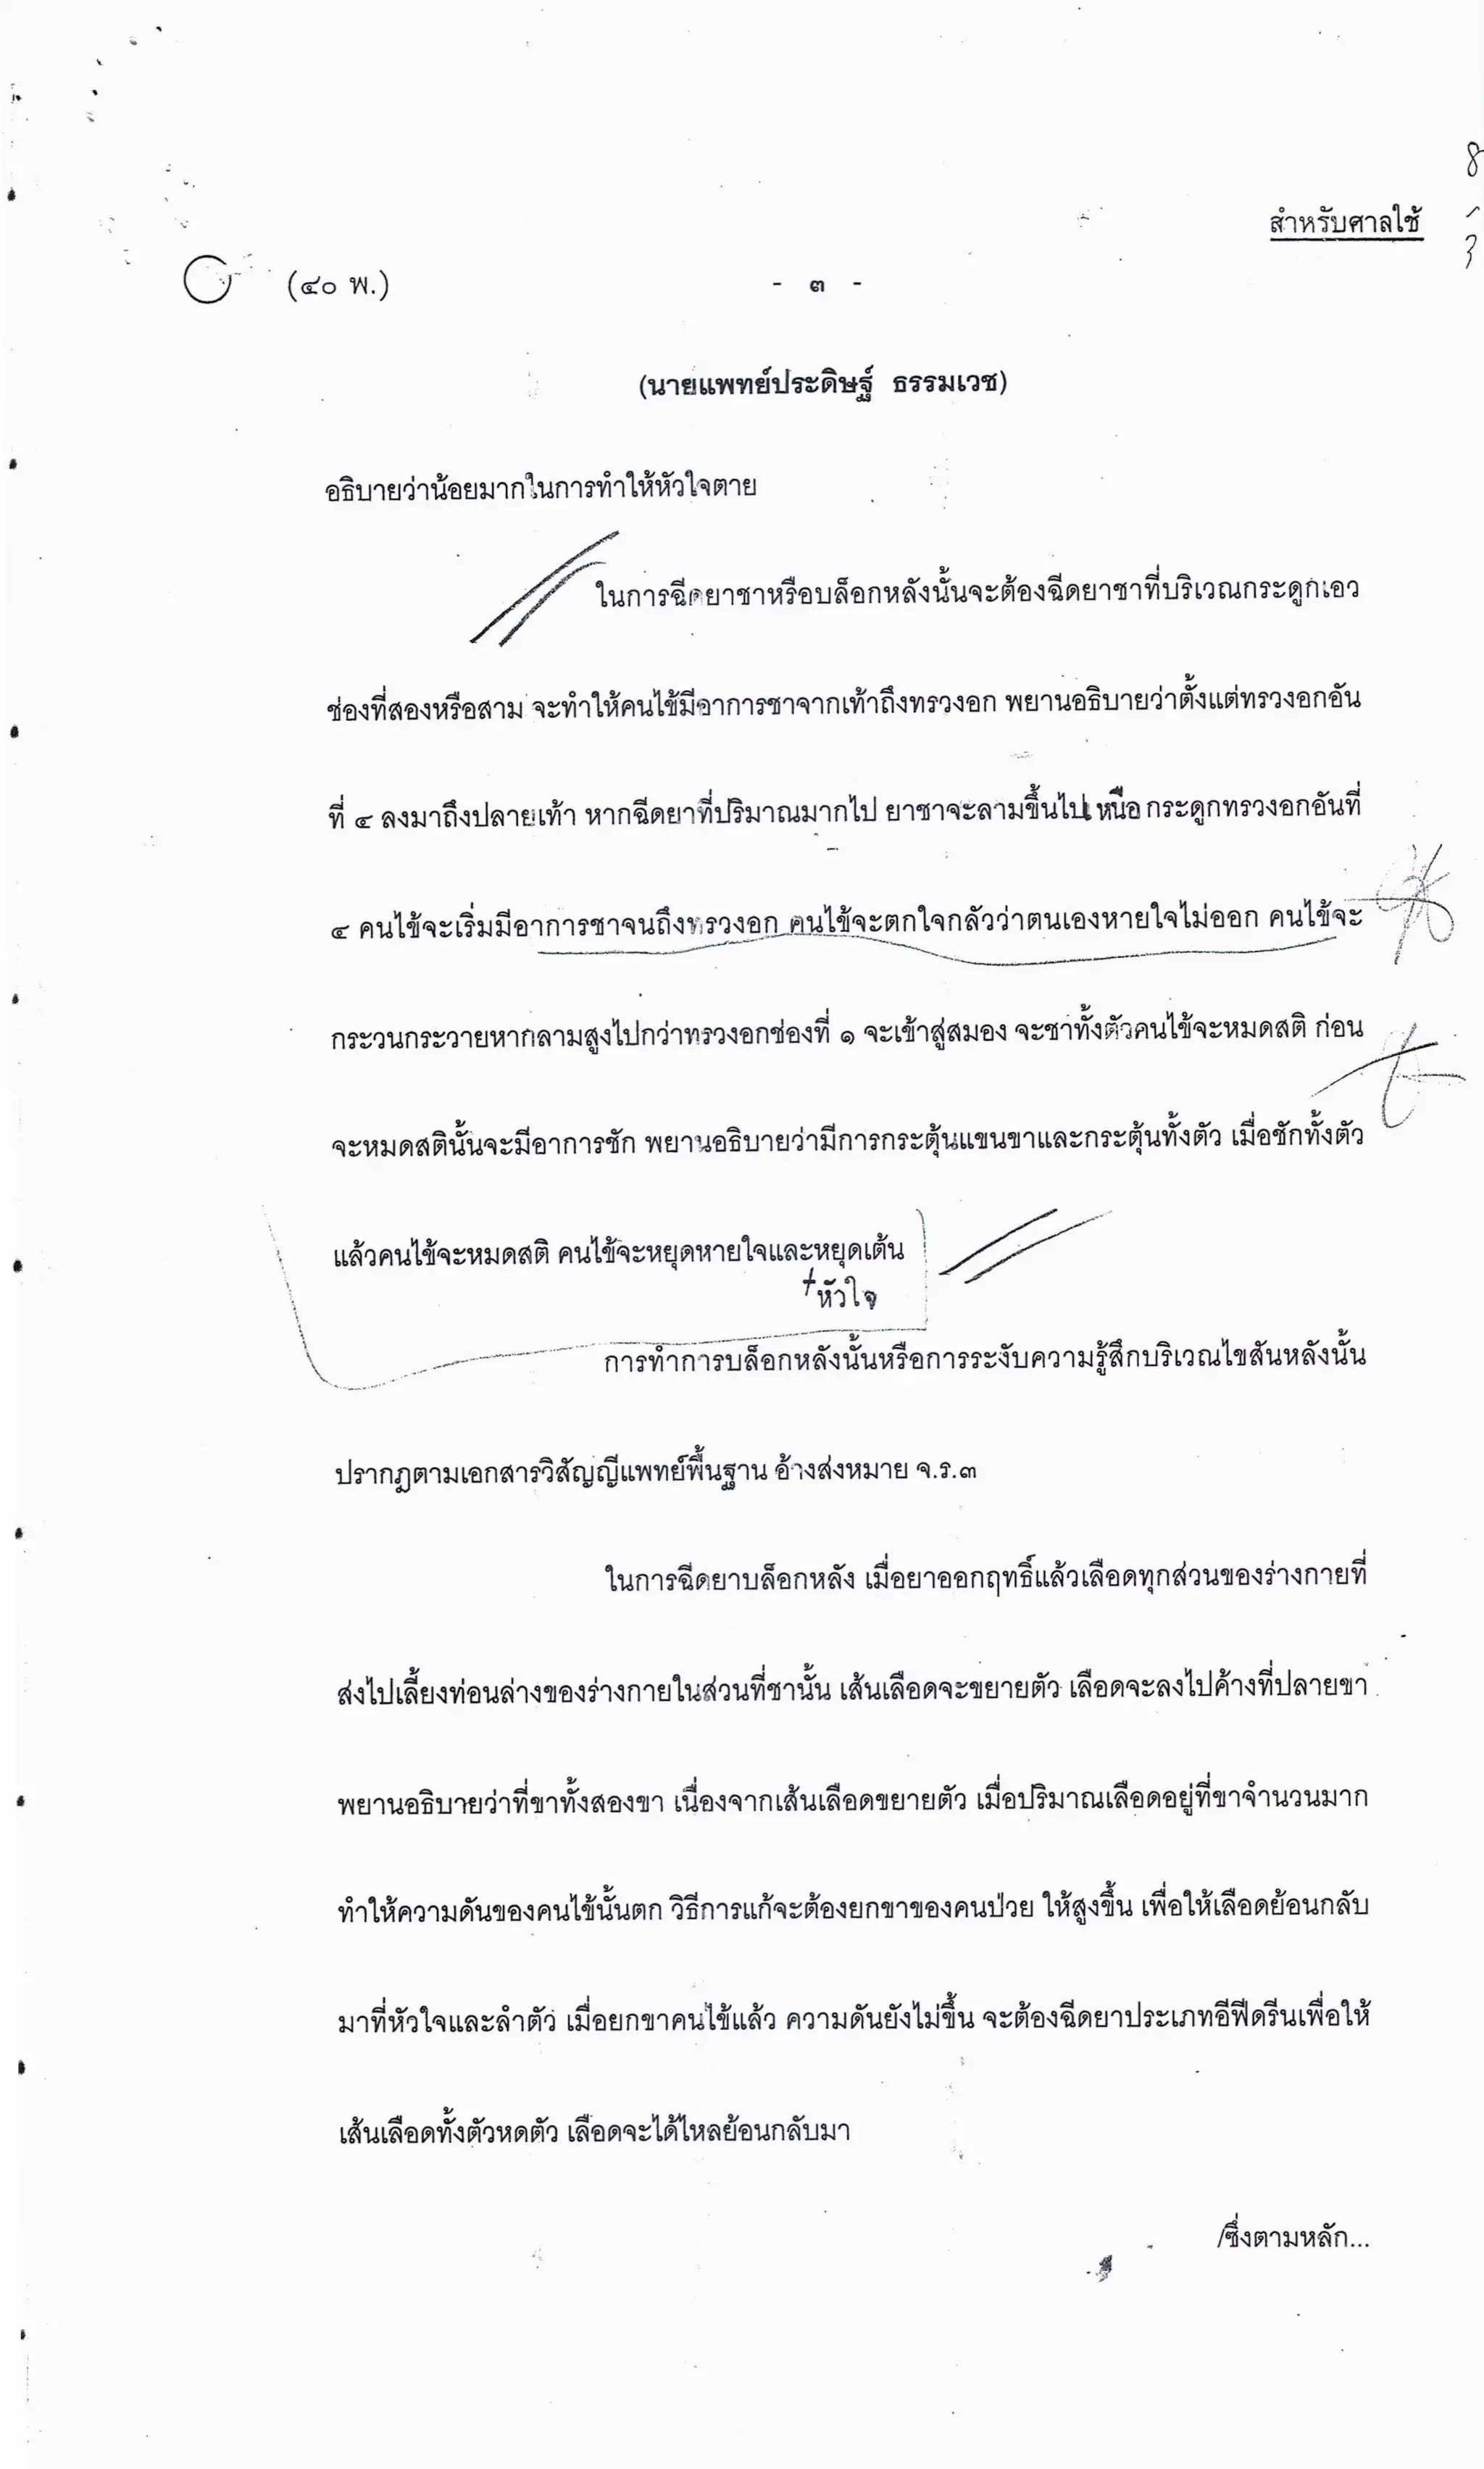 สำหรับศาลใช้
(๔๐ พ.) - ๓ -
(นายแพทย์ประดิษฐ์ ธรรมเวช)
อธิบายว่าน้อยมากในการทำให้หัวใจตาย
ในการฉีดยาชาหรือบล็อกหลังนั้นจะต้องฉีดยาชาที่บริเวณกระดูกเอว
ช่องที่สองหรือสาม จะทำให้คนไข้มีอาการชาจากเท้าถึงทรวงอก พยานอธิบายว่าตั้งแต่ทรวงอกอัน
ที่ ๔ ลงมาถึงปลายเท้า หากฉีดยาที่ปริมาณมากไป ยาชาจะลามขึ้นไปเหนือกระดูกทรวงอกอันที่
๔ คนไข้จะเริ่มมีอาการชาจนถึงทรวงอก คนไข้จะตกใจกลัวว่าตนเองหายใจไม่ออก คนไข้จะ
กระวนกระวายหากลามสูงไปกว่าทรวงอกช่องที่ ๑ จะเข้าสู่สมอง จะชาทั้งตัวคนไข้จะหมดสติ ก่อน
จะหมดสตินั้นจะมีอาการชัก พยานอธิบายว่ามีการกระตุ้นแขนขาและกระตุ้นทั้งตัว เมื่อชักทั้งตัว
แล้วคนไข้จะหมดสติ คนไข้จะหยุดหายใจและหยุดเต้น
หัวใจ
การทำการบล็อกหลังนั้นหรือการระงับความรู้สึกบริเวณไขสันหลังนั้น
ปรากฏตามเอกสารวิสัญญีแพทย์พื้นฐาน อ้างส่งหมาย จ.ร.๓
ในการฉีดยาบล็อกหลัง เมื่อยาออกฤทธิ์แล้วเลือดทุกส่วนของร่างกายที่
ส่งไปเลี้ยงท่อนล่างของร่างกายในส่วนที่ชานั้น เส้นเลือดจะขยายตัว เลือดจะลงไปค้างที่ปลายขา
พยานอธิบายว่าที่ขาทั้งสองขา เนื่องจากเส้นเลือดขยายตัว เมื่อปริมาณเลือดอยู่ที่ขาจำนวนมาก
ทำให้ความดันของคนไข้นั้นตก วิธีการแก้จะต้องยกขาของคนป่วย ให้สูงขึ้น เพื่อให้เลือดย้อนกลับ
มาที่หัวใจและลำตัว เมื่อยกขาคนไข้แล้ว ความดันยังไม่ขึ้น จะต้องฉีดยาประเภทอีฟีดรีนเพื่อให้
เส้นเลือดทั้งตัวหดตัว เลือดจะได้ไหลย้อนกลับมา
/ซึ่งตามหลัก...